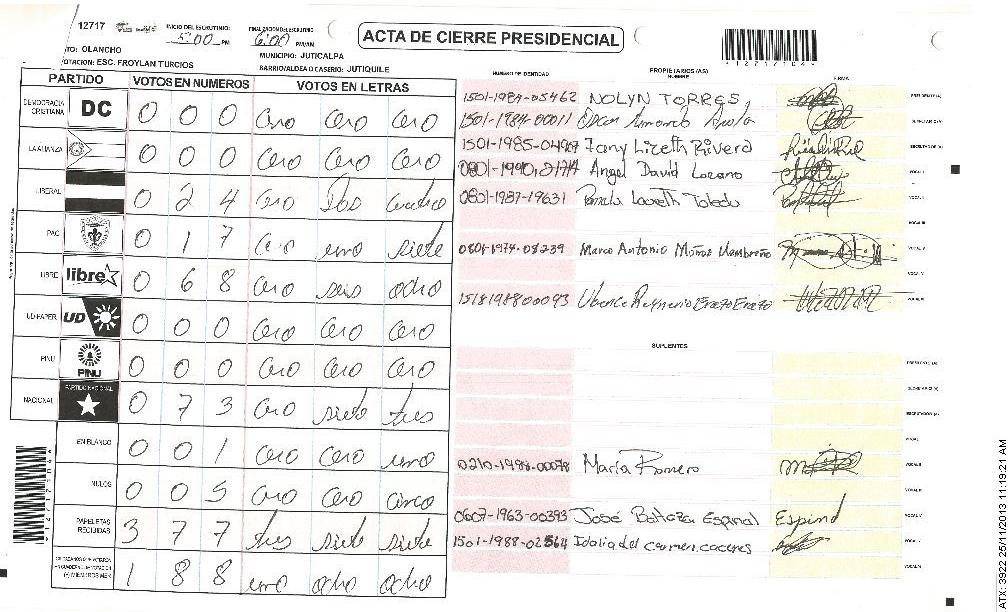 12717 INICIO DEL ESCRUTINIO: 5:00 PM FINALIZACION DEL ESCRUTINIO 6:00 PM/AM
ACTA DE CIERRE PRESIDENCIAL
TO: OLANCHO MUNICIPIO: JUTICALPA
OTACION: ESC. FROYLAN TURCIOS BARRIO/ALDEA O CASERIO: JUTIQUILE
PARTIDO VOTOS EN NUMEROS VOTOS EN LETRAS
DEMOCRACIA CRISTIANA DC 0 0 0 Cero Cero Cero
LA ALIANZA 0 0 0 Cero Cero Cero
LIBERAL 0 2 4 Cero Dos Cuatro
PAC 0 1 7 Cero uno siete
LIBRE libre 0 6 8 Cero seis ocho
UD-FAPER UD 0 0 0 Cero Cero Cero
PINU PINU 0 0 0 Cero Cero Cero
NACIONAL PARTIDO NACIONAL 0 7 3 Cero siete tres
EN BLANCO 0 0 1 Cero Cero uno
NULOS 0 0 5 Cero Cero cinco
PAPELETAS RECIBIDAS 3 7 7 tres siete siete
1 8 8 uno ocho ocho
NUMERO DE IDENTIDAD PROPIETARIOS (AS) NOMBRE FIRMA
1501-1984-05462 NOLYN TORRES PRESIDENTE (A)
1501-1984-00011 SECRETARIO (A)
1501-1985-04907 Fany Lizeth Rivera ESCRUTADOR (A)
Angel David Lozano VOCAL I
0801-1987-19631 Pamela Lizeth Toledo VOCAL II
VOCAL III
0801-1974-08239 Marco Antonio Muñoz Membreño VOCAL IV
VOCAL V
1518198800093 VOCAL VI
SUPLENTES
PRESIDENTE (A)
SECRETARIO (A)
ESCRUTADOR (A)
VOCAL I
0210-1998-00078 María Romero VOCAL II
VOCAL III
0607-1963-00393 José Baltazar Espinal Espinal VOCAL IV
1501-1988-02564 Idalia del carmen caceres VOCAL V
VOCAL VI
ATX: 3922 25/11/2013 11:19:21 AM